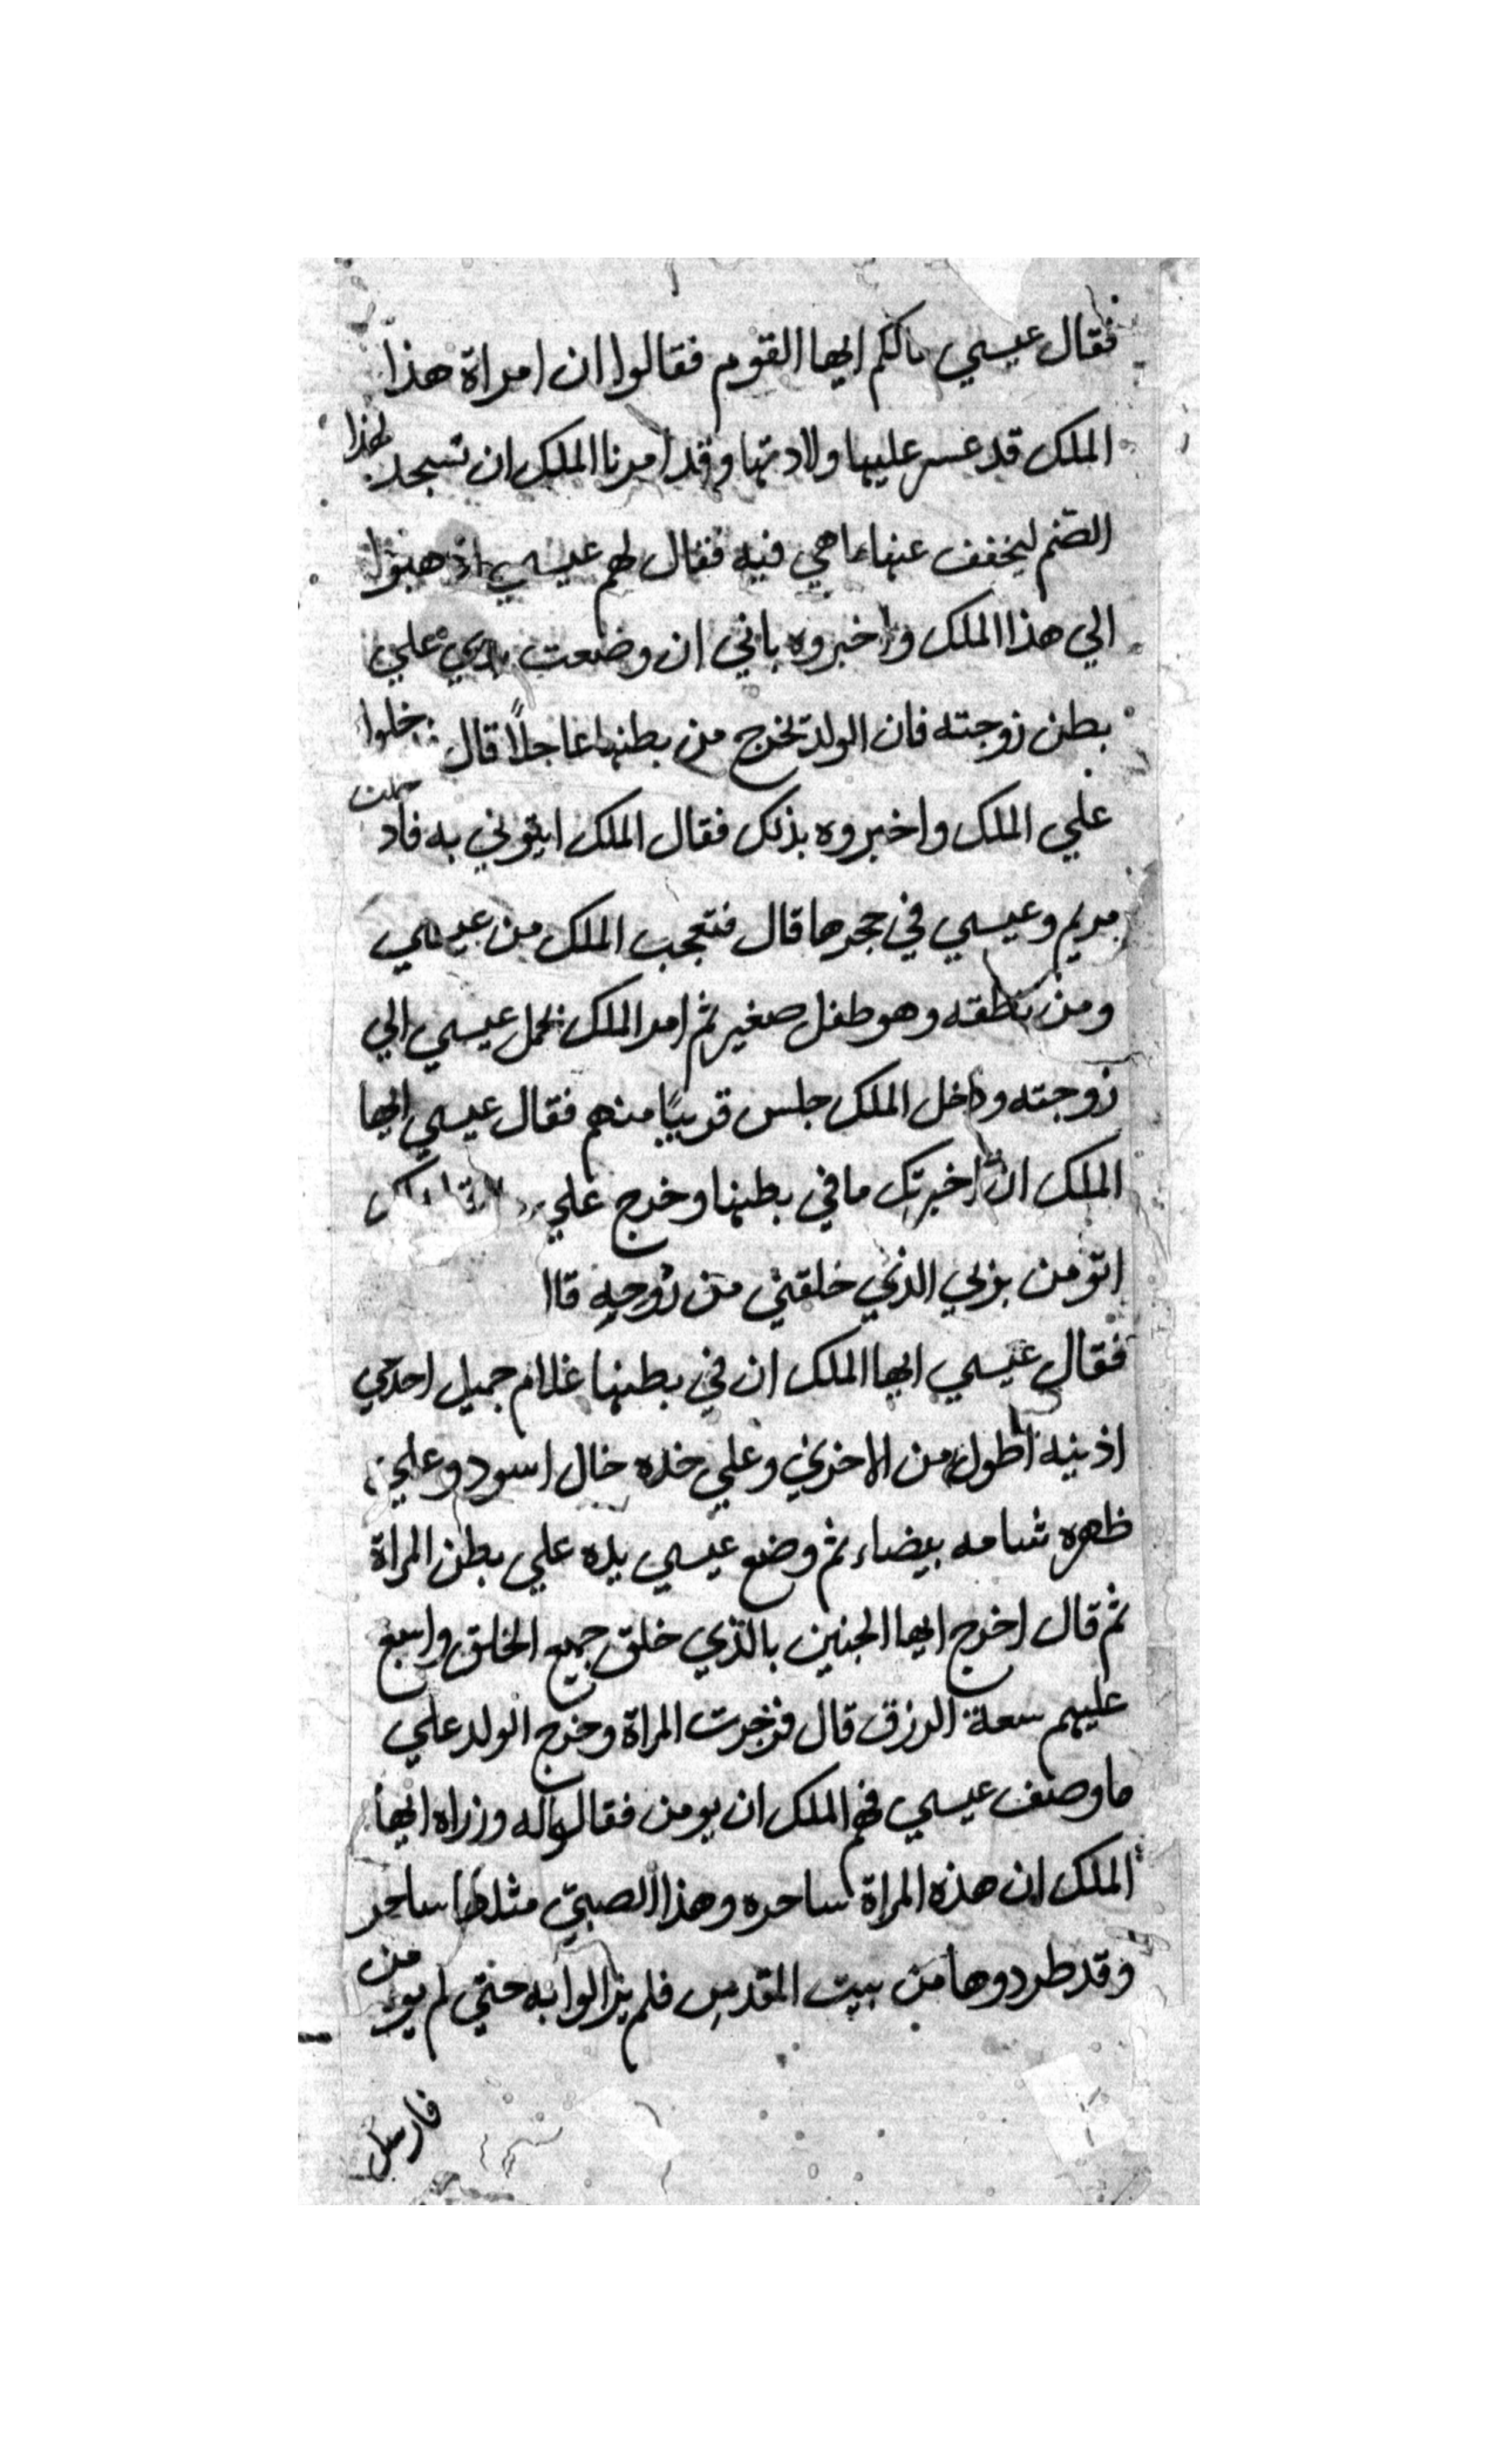 فقال عيسي مالكم ايها القوم فقالوا ان امراة هذا
الملك قد عسر عليها ولادتها وقد امرنا الملك ان نسجد لهذا
الصنم ليخفف عنها ما هي فيه فقال لهم عيسي اذهبوا
الي هذا الملك واخبروه باني ان وضعت يدي علي
بطن زوجته فان الولد يخرج من بطنها عاجلاً قال فدخلوا
علي الملك واخبروه بذلك فقال الملك ايتوني به فادخلت
مريم وعيسي في حجرها قال فتعجب الملك من عيسي
ومن نطقه وهو طفل صغير ثم امر الملك بحمل عيسي الي
زوجته ودخل الملك جلس قريبًا منهم فقال عيسي ايها
الملك ان اخبرتك ما في بطنها وخرج علي
اتومن بربي الذي خلقني من روحه
فقال عيسي ايها الملك ان في بطنها غلام جميل احدي
اذنيه اطول من الاخري وعلي خده خال اسود وعلي
ظهره شامه بيضاء ثم وضع عيسي يده علي بطن المراة
ثم قال اخرج ايها الجنين بالذي خلق جميع الخلق واسبغ
عليهم سعة الرزق قال فزجرت المراة وخرج الولد علي
ما وصف عيسي فهم الملك ان يومن فقالوا له وزراه ايها
الملك ان هذه المراة ساحره وهذا الصبيّ مثلها ساحر
وقد طردوها من بيت المقدس فلم يزالوا به حتي لم يومن
فارسل